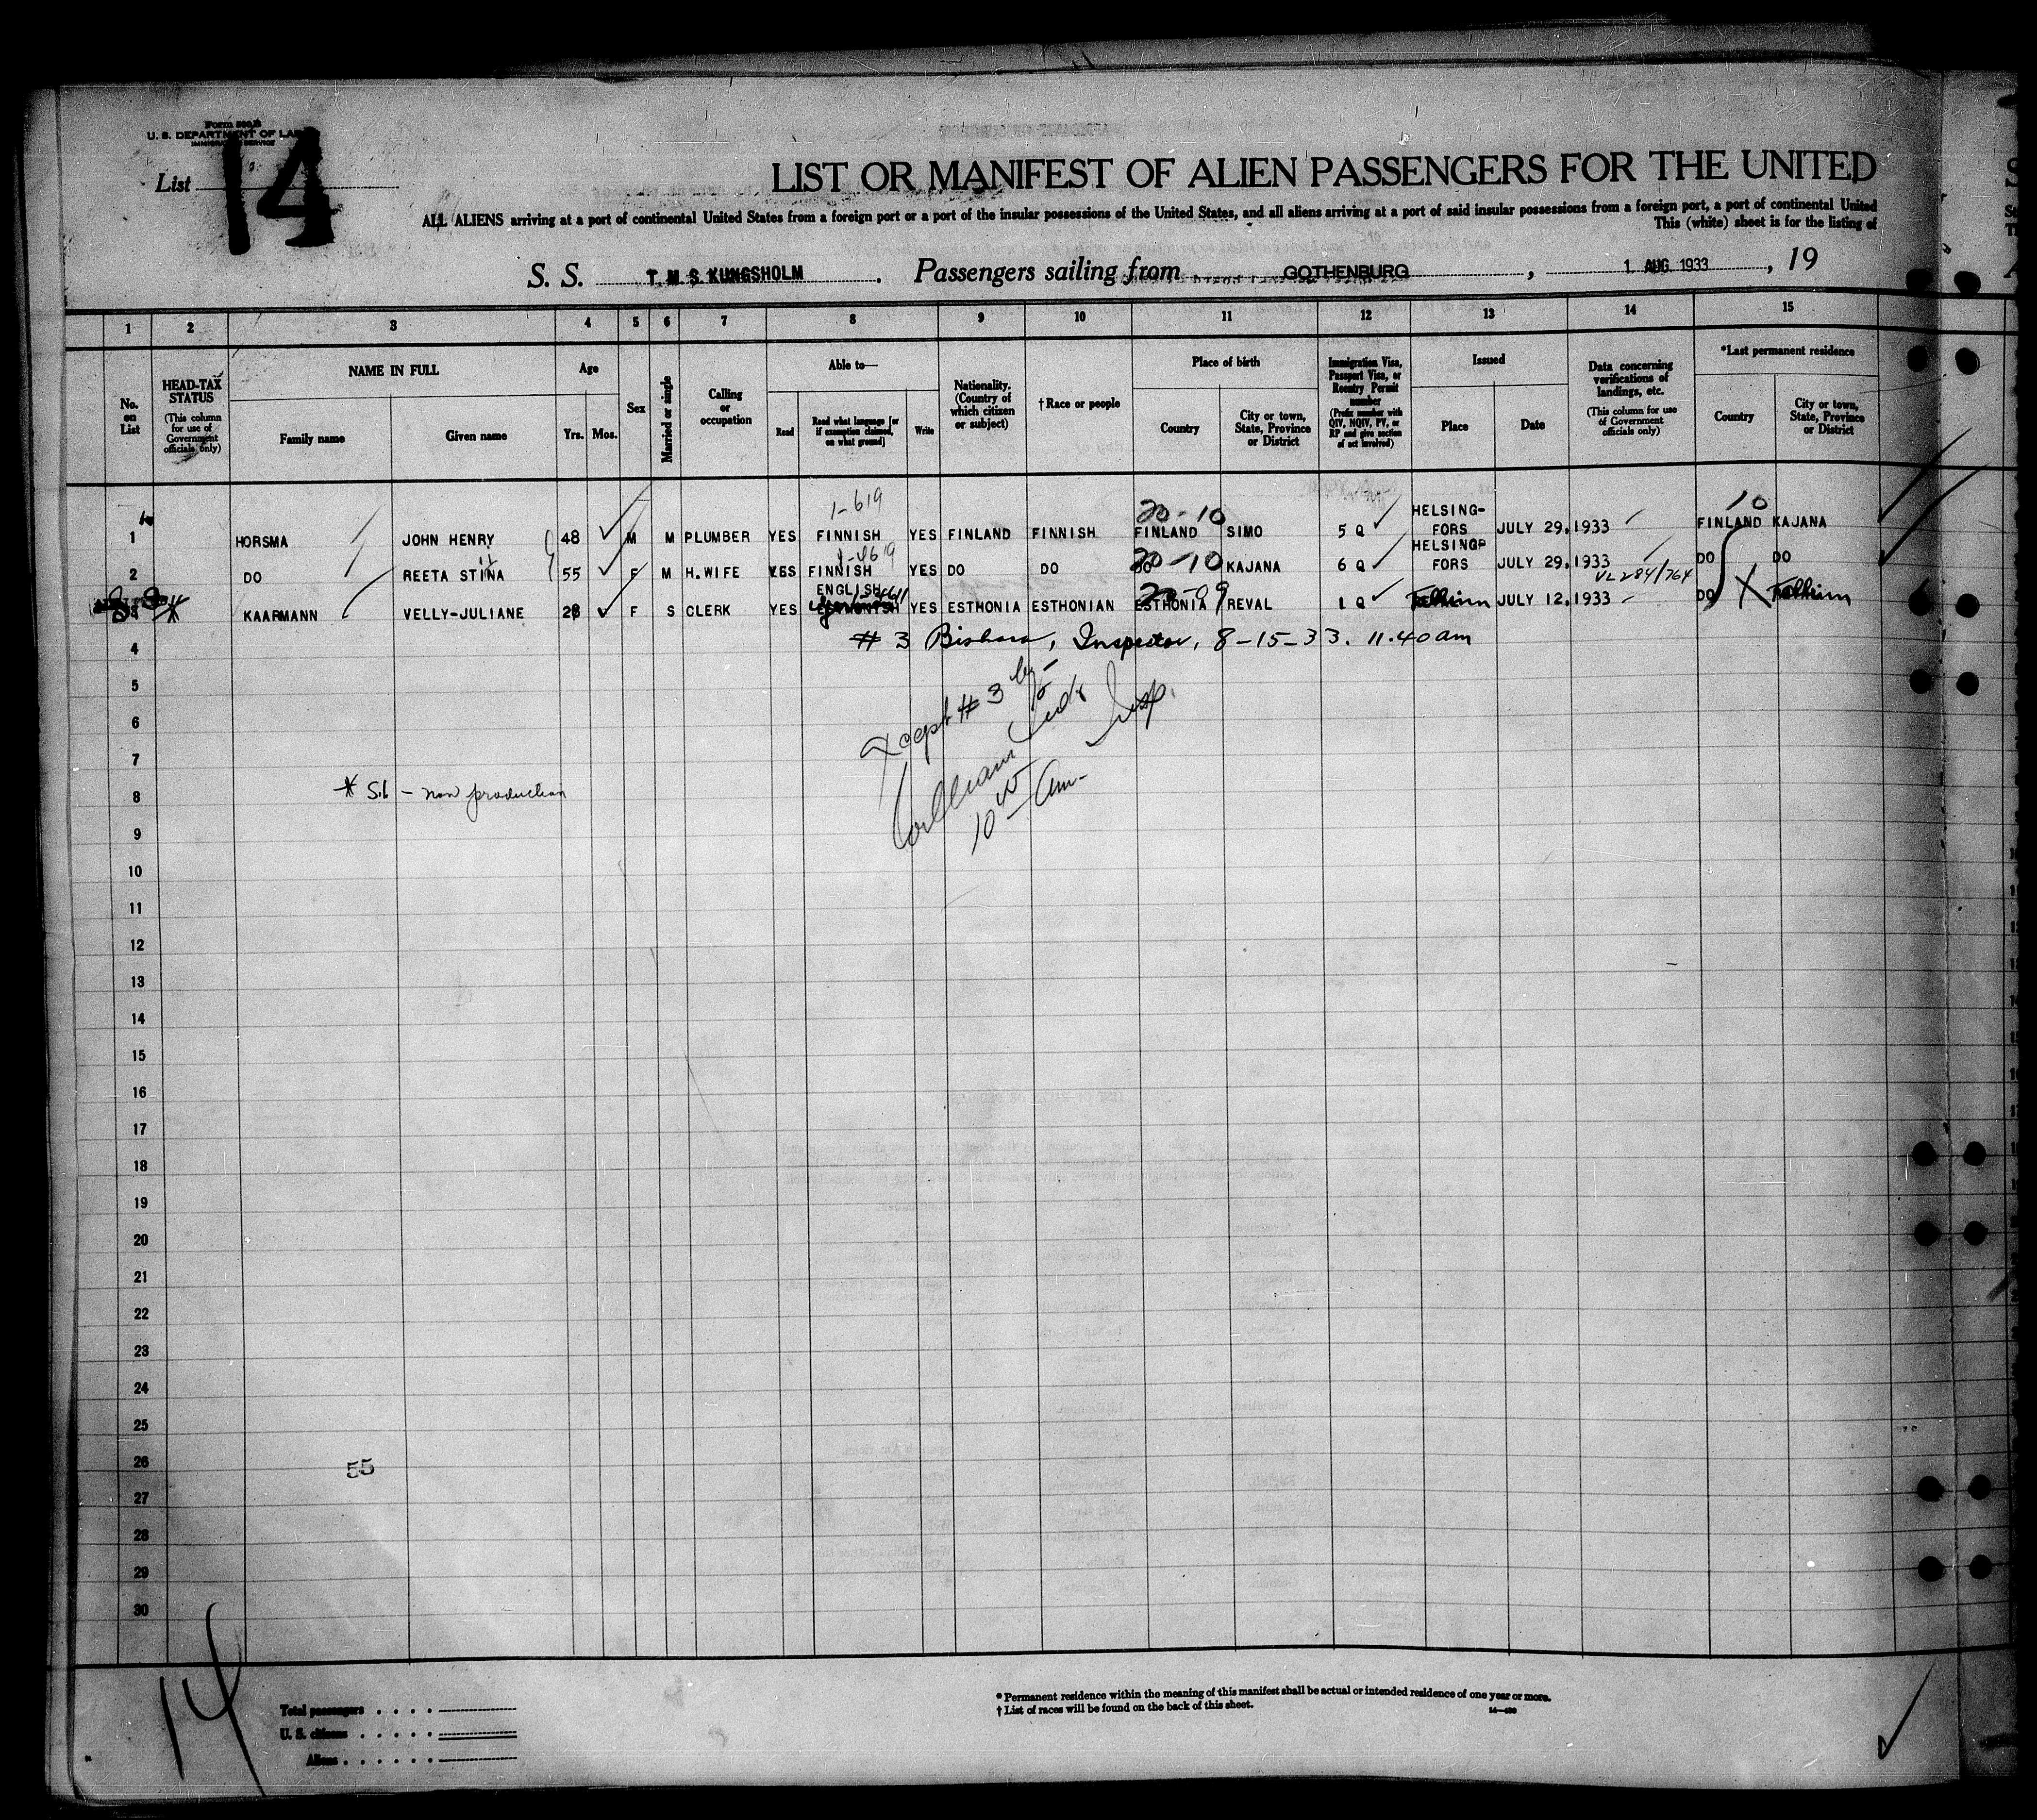 Form 500 B
U. S. DEPARTMENT OF LAB
IMMIGRATION SERVICE
List 14
LIST OR MANIFEST OF ALIEN PASSENGERS FOR THE UNITED
ALL ALIENS arriving at a port of continental United States from a foreign port or a port of the insular possessions of the United States, and all aliens arriving at a port of said insular possessions from a foreign port, a port of continental United
This (white) sheet is for the listing of
S. S. T. M. S. KUNGSHOLM. Passengers sailing from GOTHENBURG, 1 AUG. 1933, 19
1 2 3 4 5 6 7 8 9 10 11 12 13 14 15
No. on List
HEAD-TAX STATUS (This column for use of Government officials only)
NAME IN FULL
Family name
Given name
Age
Yrs. Mos.
Sex
Married or single
Calling or occupation
Able to—
Read
Read what language [or if exemption claimed, on what ground]
Write
Nationality. (Country of which citizen or subject)
†Race or people
Place of birth
Country
City or town, State, Province or District
Immigration Visa, Passport Visa, or Reentry Permit number (Prefix number with QIV, NQIV, PV, or RP and give section of act involved)
Issued
Place
Date
Data concerning verifications of landings, etc. (This column for use of Government officials only)
*Last permanent residence
Country
City or town, State, Province or District
1-619 20-10 HELSING- 10
1 HORSMA JOHN HENRY 48 M M PLUMBER YES FINNISH YES FINLAND FINNISH FINLAND SIMO 5 Q FORS JULY 29.1933 FINLAND KAJANA
1-619 20-10 HELSING-
2 DO REETA STINA 55 F M H.WIFE YES FINNISH YES DO DO DO KAJANA 6 Q FORS JULY 29.1933 DO DO
ENGLISH 20-09 VL 284/764
KAARMANN VELLY-JULIANE 28 F S CLERK YES YES ESTHONIA ESTHONIAN ESTHONIA REVAL 1 Q Tallinn JULY 12.1933 DO X Tallinn
4 # 3 Inspector, 8-15-33. 11.40 am
5
6 except # 3 by
7 William Insp.
8 * S.I. - non production 10 45 Am-
9
10
11
12
13
14
15
16
17
18
19
20
21
22
23
24
25
26 55
27
28
29
30
14
Total passengers . . . .
U. S. citizens . . . . .
Aliens . . . . . .
* Permanent residence within the meaning of this manifest shall be actual or intended residence of one year or more.
† List of races will be found on the back of this sheet.